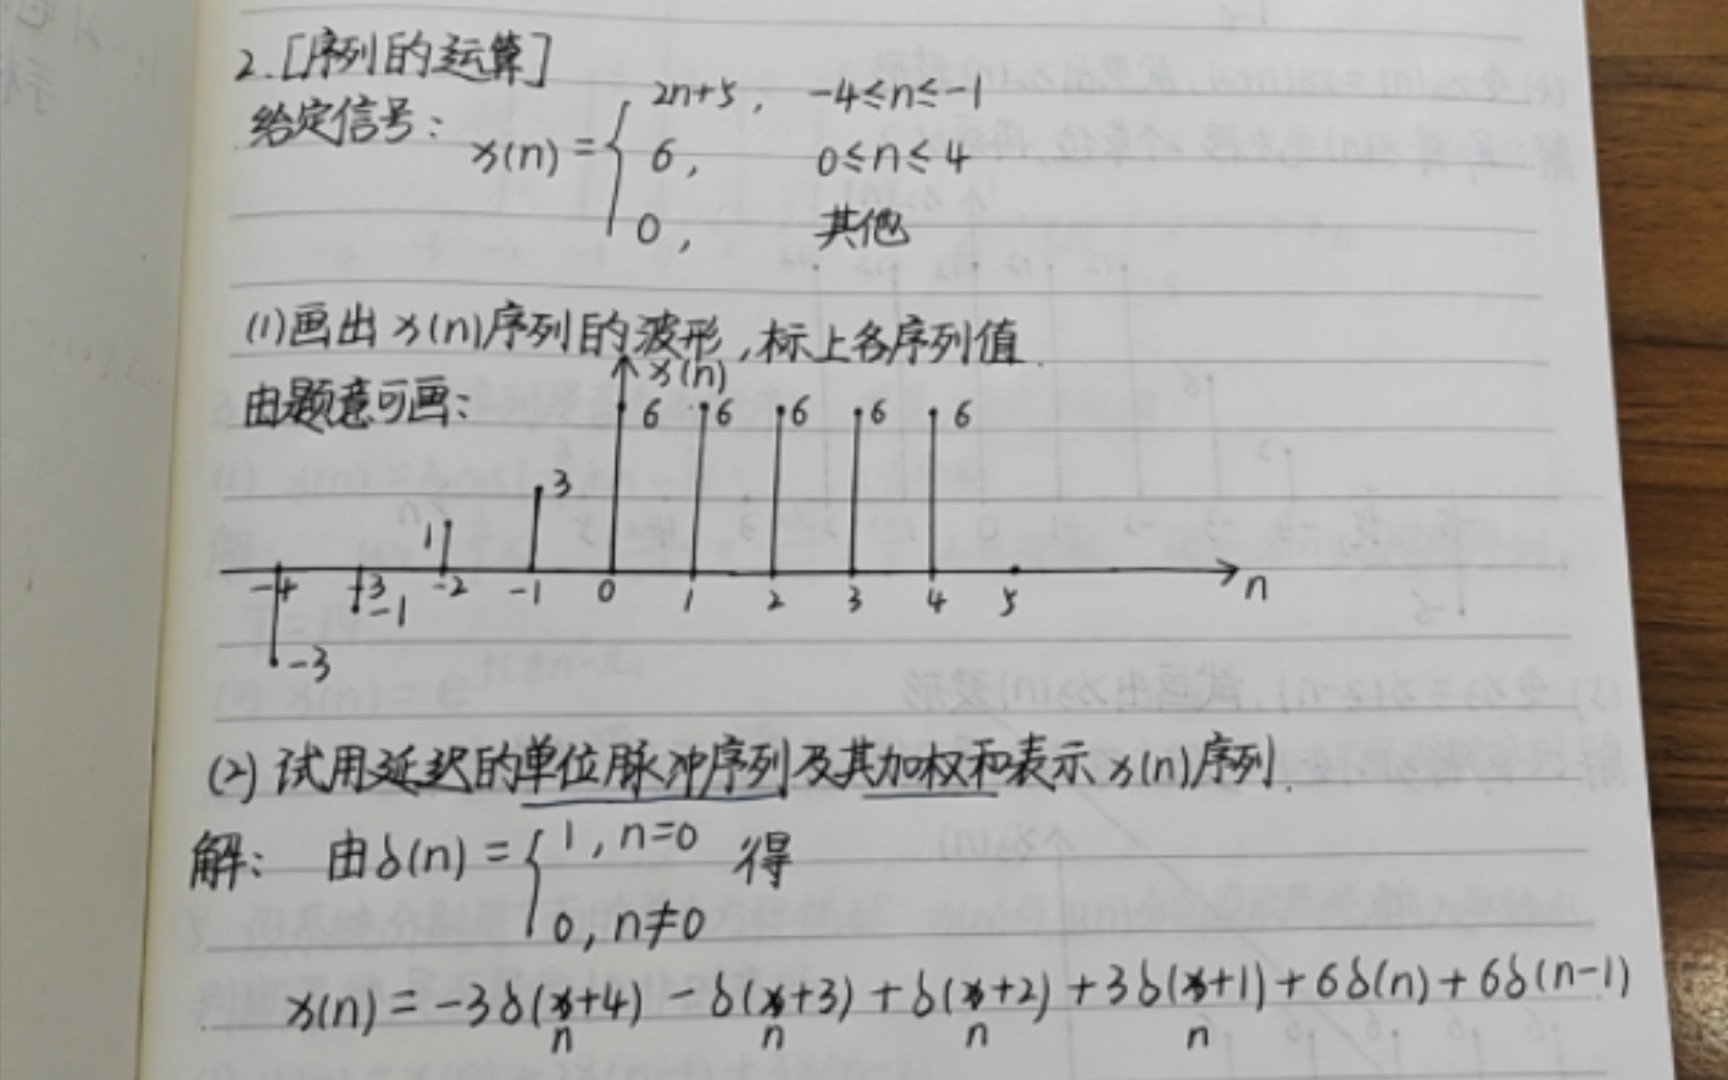 2.[序列的运算]
给定信号: x(n) = { 2n+5, -4≤n≤-1
6, 0≤n≤4
0, 其他
(1)画出x(n)序列的波形,标上各序列值.
由题意可画:
x(n)
6 6 6 6 6
3
1
-4 -3 -2 -1 0 1 2 3 4 5 n
-1
-3
(2) 试用延迟的单位脉冲序列及其加权和表示x(n)序列.
解: 由δ(n) = { 1, n=0 得
0, n≠0
x(n) = -3δ(n+4) - δ(n+3) + δ(n+2) + 3δ(n+1) + 6δ(n) + 6δ(n-1)